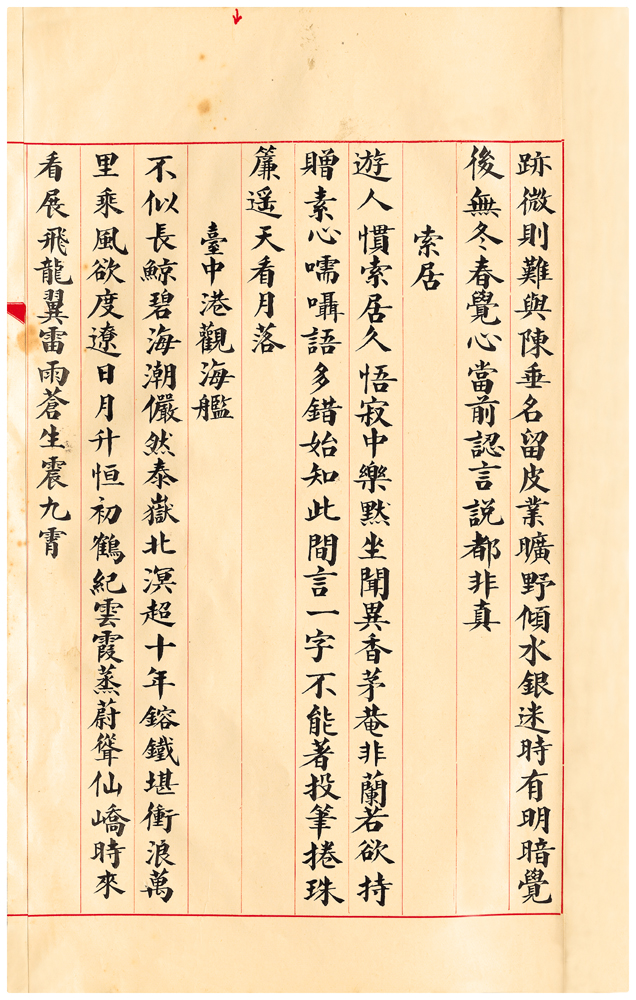 跡微則難與陳垂名留皮業曠野傾水銀迷時有明暗覺
後無冬春覺心當前認言說都非真
索居
遊人慣索居久悟寂中樂默坐聞異香茅菴非蘭若欲持
贈素心嚅囁語多錯始知此間言一字不能著投筆捲珠
簾遥天看月落
臺中港觀海艦
不似長鯨碧海潮儼然泰嶽北溟超十年鎔鐵堪衝浪萬
里乘風欲度遼日月升恒初鶴紀雲霞蒸蔚聳仙嶠時來
看展飛龍翼雷雨蒼生震九霄